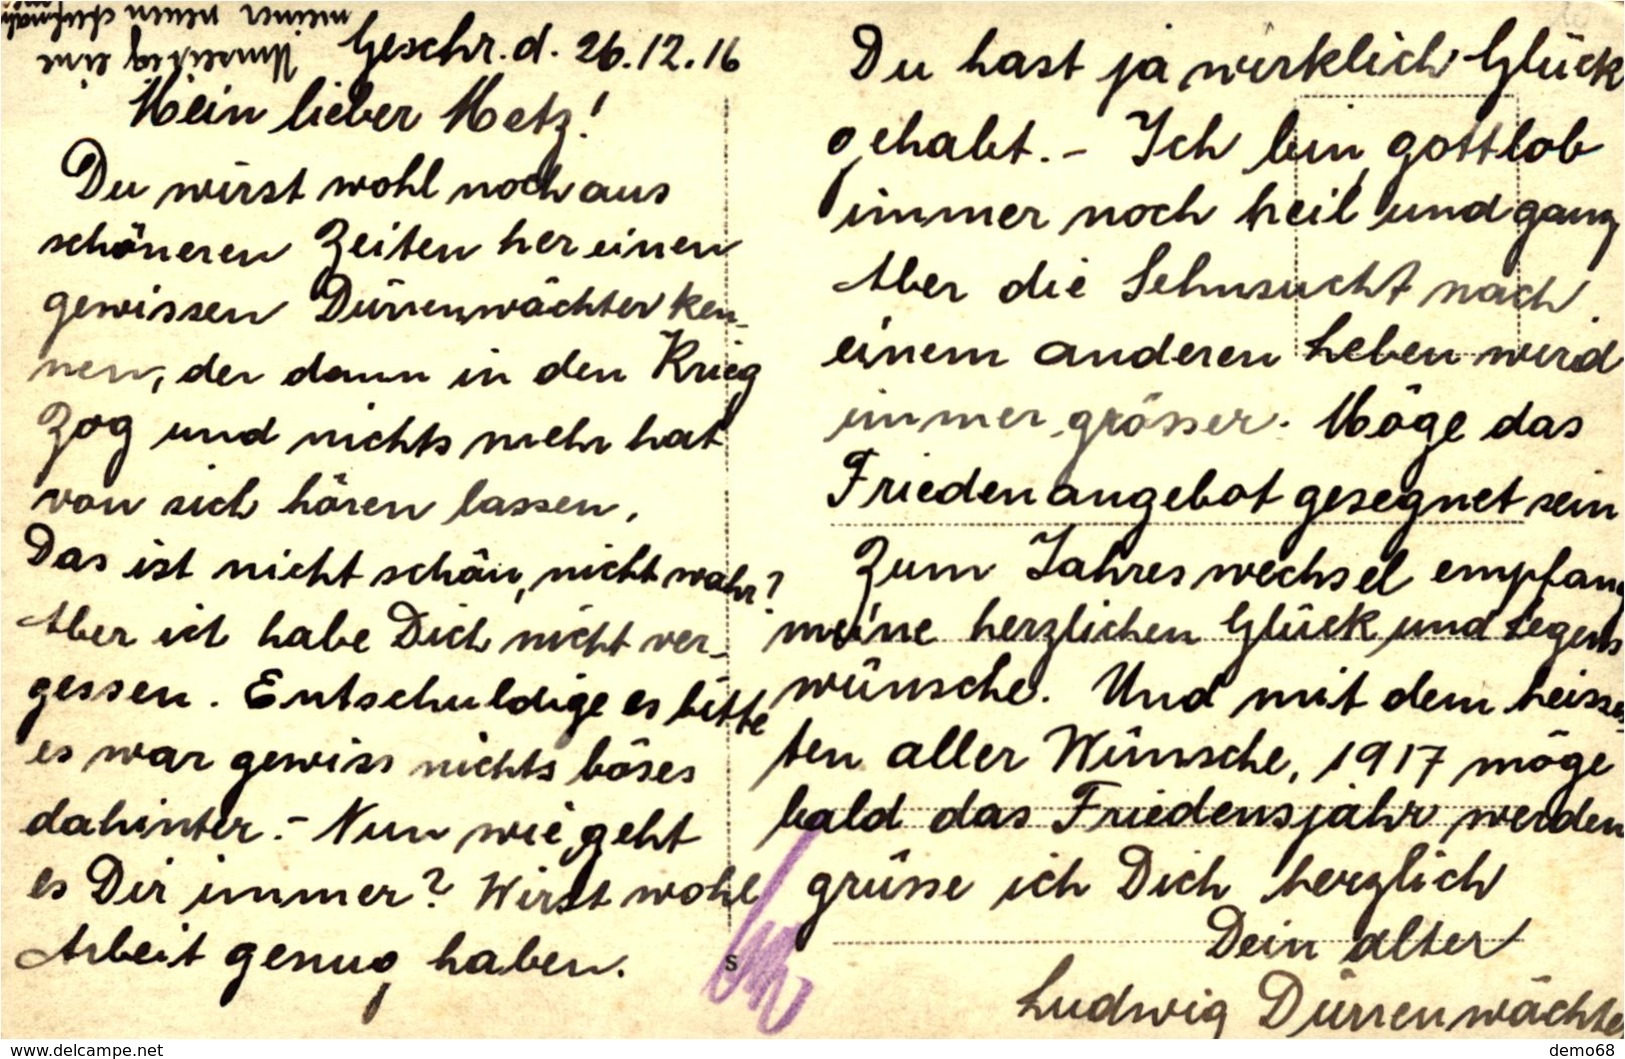 Geschr. d. 26.12.16
Mein lieber Metz!
Du wirst wohl noch aus
schöneren Zeiten her einen
gewissen Dürrenwächter ken-
nen, der dann in den Krieg
Zog und nichts mehr hat
von sich hören lassen.
Das ist nicht schön, nicht wahr?
Aber ich habe Dich nicht ver-
gessen. Entschuldige es bitte
es war gewiss nichts böses
dahinter. - Nun wie geht
es Dir immer? Wirst wohl
Arbeit genug haben.
Du hast ja wirklich Glück
gehabt. - Ich bin gottlob
immer noch heil und ganz
Aber die Sehnsucht nach
einem anderen Leben wird
immer grösser. Möge das
Friedenangebot gesegnet sein
Zum Jahreswechsel empfang
meine herzlichen Glück und Segens
wünsche. Und mit dem heisse
ten aller Wünsche, 1917 möge
bald das Friedensjahr werden
grüsse ich Dich herzlich
Dein alter
Ludwig Dürrenwächte
Umseitig eine
meiner neuen
s
www.delcampe.net
demo68